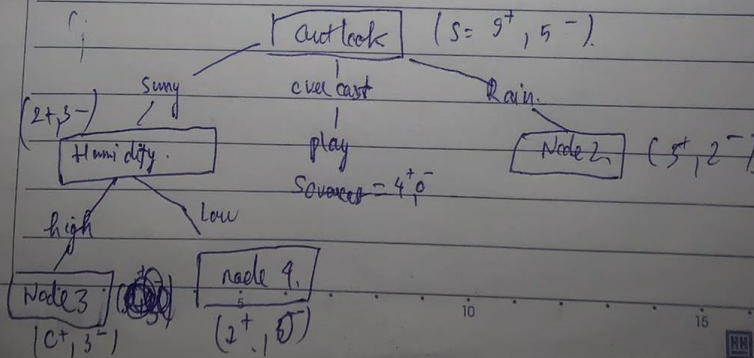 Outlook (S= 9+, 5-).
Sunny overcast Rain.
(2+,3-)
Humidity. play Node 2. (3+, 2-)
Sovercast = 4+,0-
high Low
Node 3 node 4.
(0+, 3-) (2+, 0-)
5 10 15